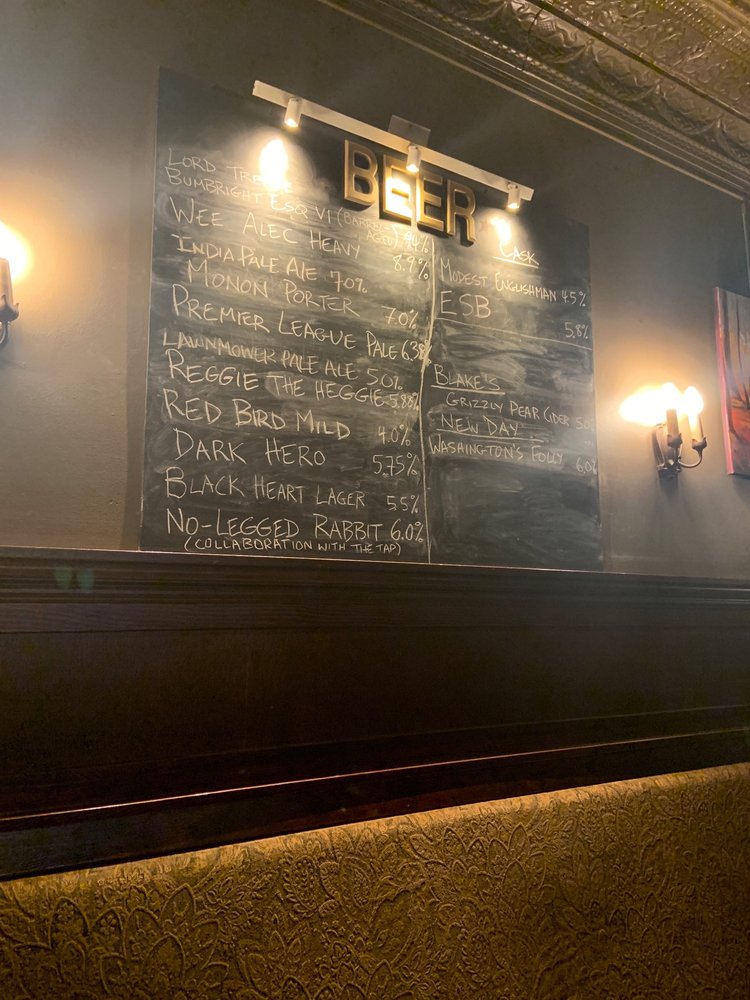 BEER
LORD
BUMBRIGHT ESQ VI (BARREL
AGED) 9.4%
WEE ALEC HEAVY 8.9%
INDIA PALE ALE 7.0%
MONON PORTER 7.0%
PREMIER LEAGUE PALE 6.3%
LAWNMOWER PALE ALE 5.0%
REGGIE THE HEGGIE 5.88%
RED BIRD MILD 4.0%
DARK HERO 5.75%
BLACK HEART LAGER 5.5%
NO-LEGGED RABBIT 6.0%
(COLLABORATION WITH THE TAP)
CASK
MODEST ENGLISHMAN 4.5%
ESB 5.8%
BLAKE'S
GRIZZLY PEAR CIDER 5.0
NEW DAY
WASHINGTON'S FOLLY 6.0